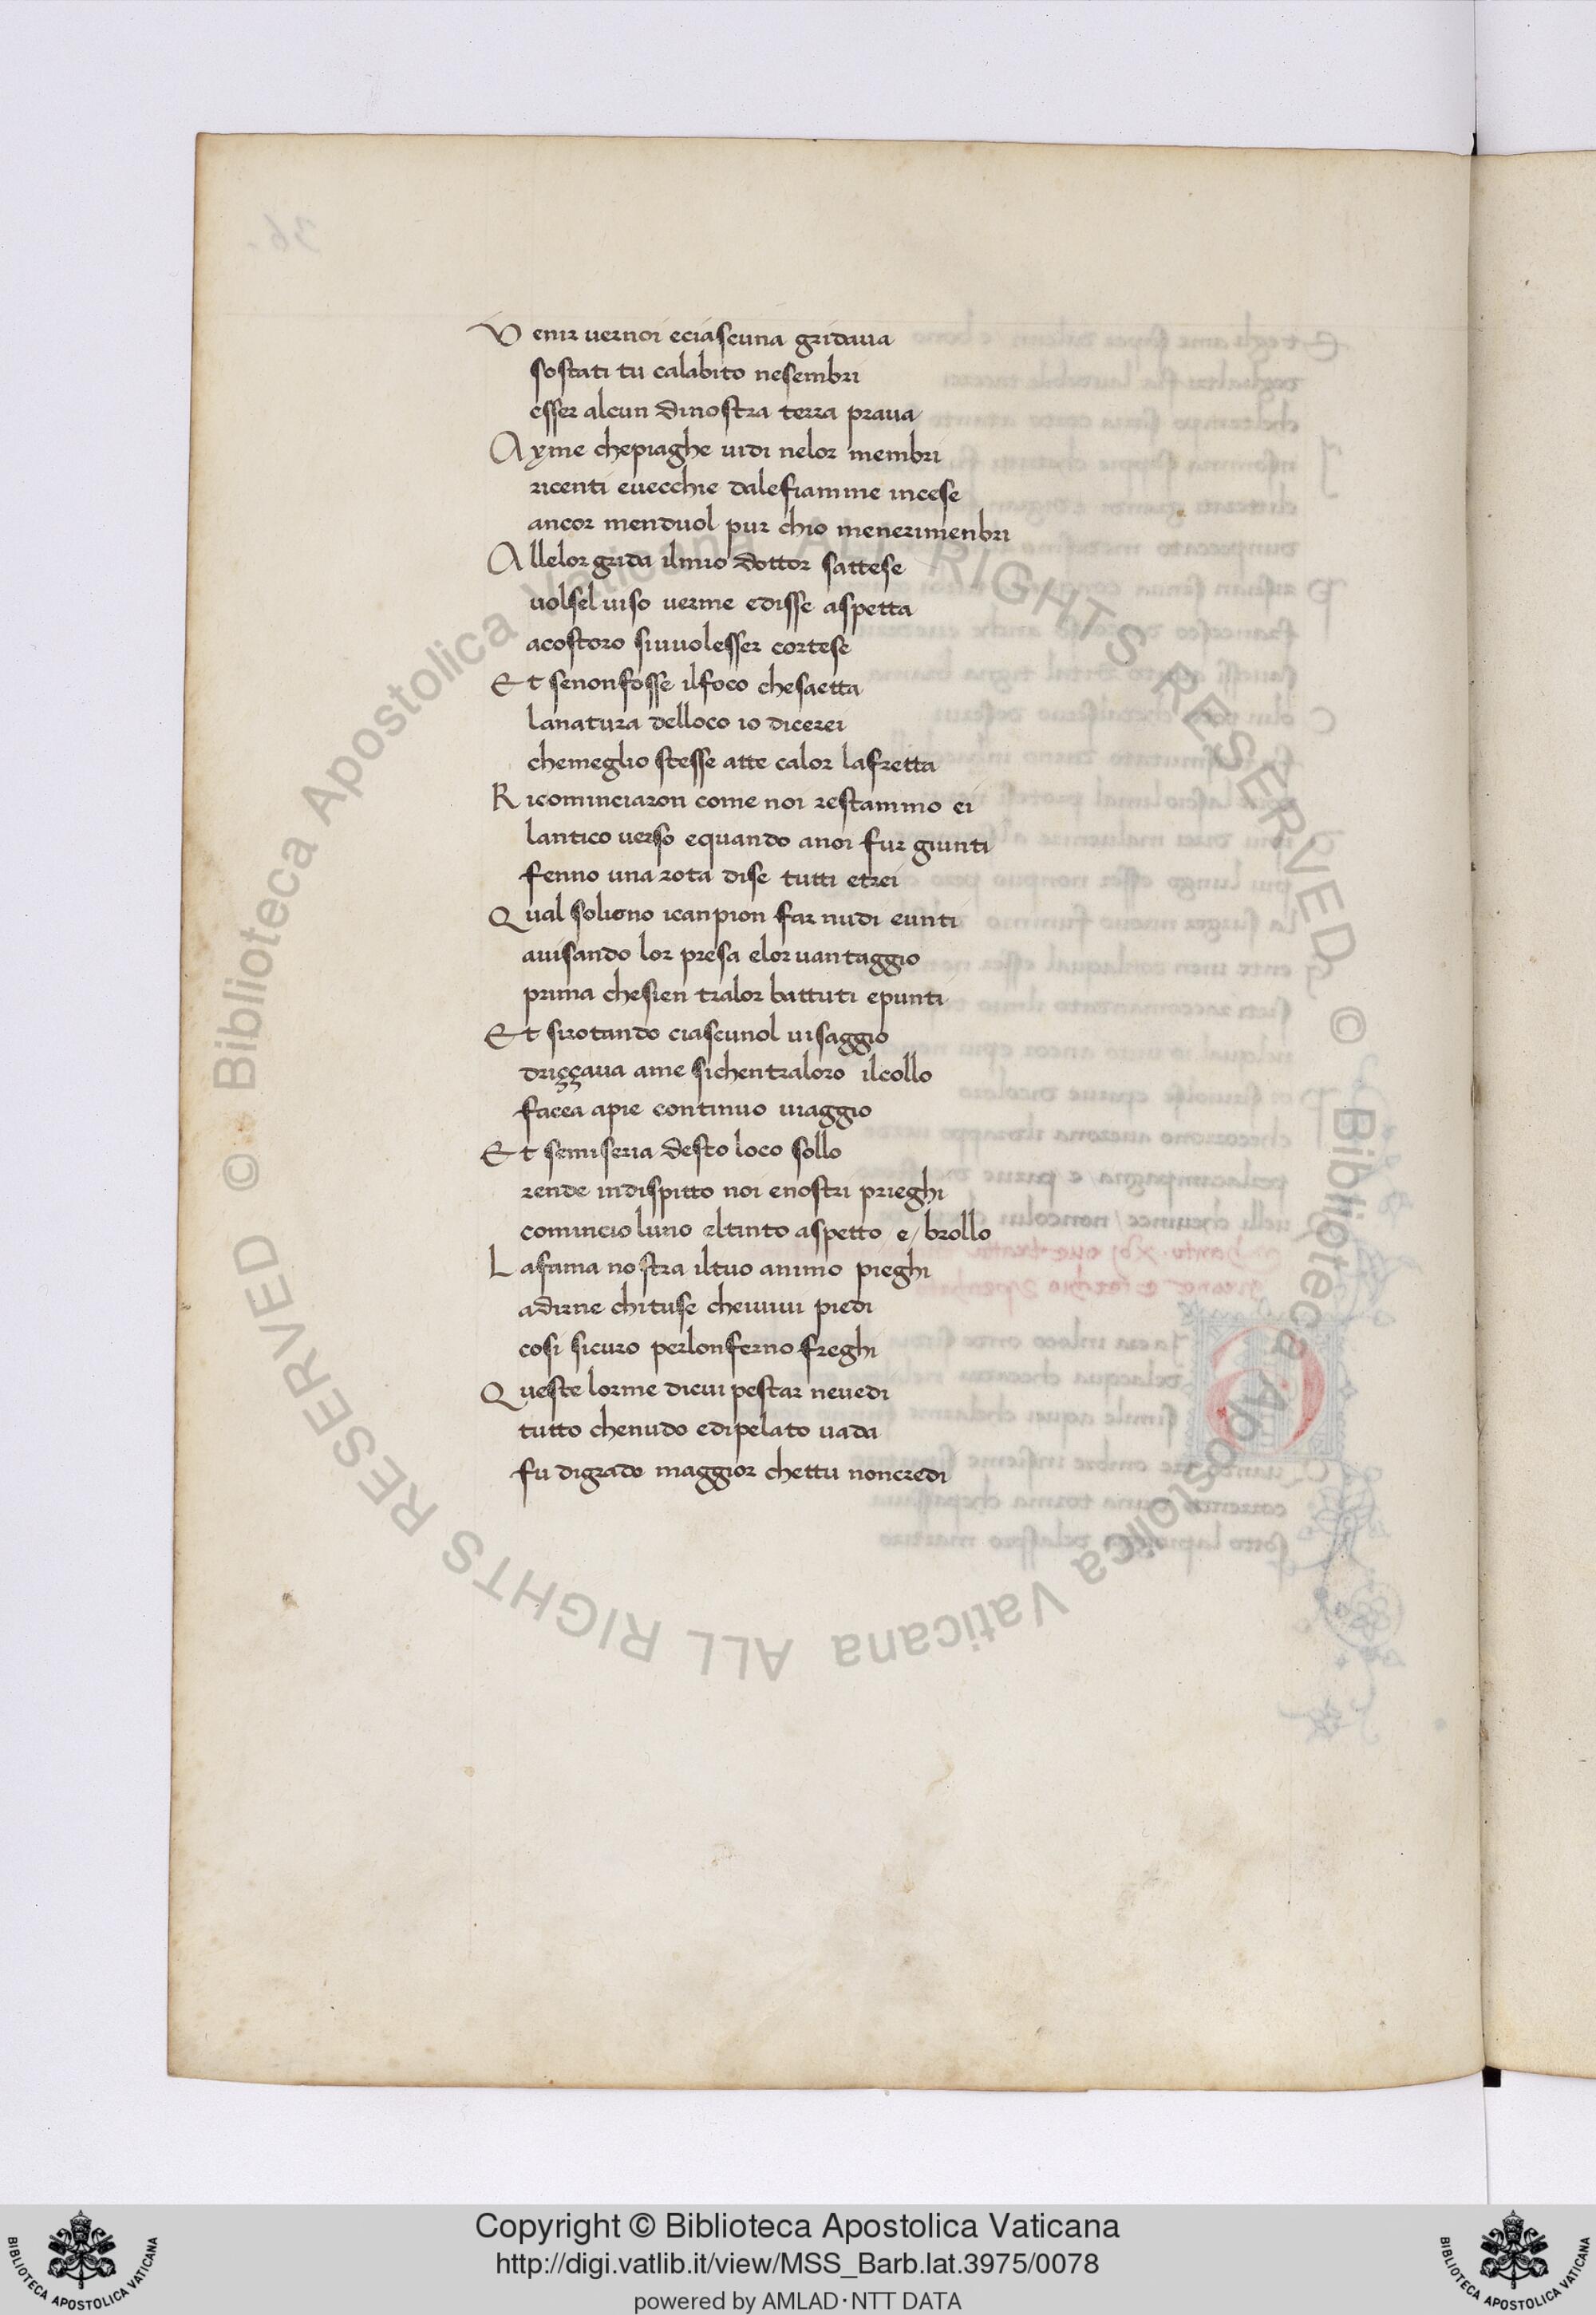 V enir uernoi eciascuna gridaua
sostati tu calabito nesembri
esser alcun dinostra terra praua
A yme chepiaghe uidi nelor membri
ricenti euecchie dalefiamme incese
ancor menduol pur chio menerimenbri
A llelor grida ilmio dottor sattese
uolsel uiso uerme edisse aspetta
acostoro siuuolesser cortese
E t senonfosse ilfoco chesaetta
lanatura delloco io dicerei
chemeglio stesse atte calor lafretta
R icominciaron come noi restammo ei
lantico uerso equando anoi fur giunti
fenno una rota dise tutti etrei
Q ual soliono icanpion far nudi eunti
auisando lor presa elor uantaggio
prima chesien tralor battuti epunti
E t sirotando ciascunol uisaggio
driççaua ame sichentraloro ilcollo
facea apie continuo uiaggio
E t semiseria desto loco sollo
rende indispitto noi enostri prieghi
comincio luno eltinto aspetto e/ brollo
L afama nostra iltuo animo pieghi
adirne chituse cheiuiui piedi
cosi sicuro perlonferno freghi
Q ueste lorme dicui pestar neuedi
tutto chenudo edipelato uada
fu digrado maggior chettu noncredi
© Biblioteca Apostolica Vaticana ALL RIGHTS RESERVED
© Biblioteca Apostolica Vaticana ALL RIGHTS RESERVED
Copyright © Biblioteca Apostolica Vaticana
http://digi.vatlib.it/view/MSS_Barb.lat.3975/0078
powered by AMLAD·NTT DATA
BIBLIOTECA APOSTOLICA VATICANA
BIBLIOTECA APOSTOLICA VATICANA